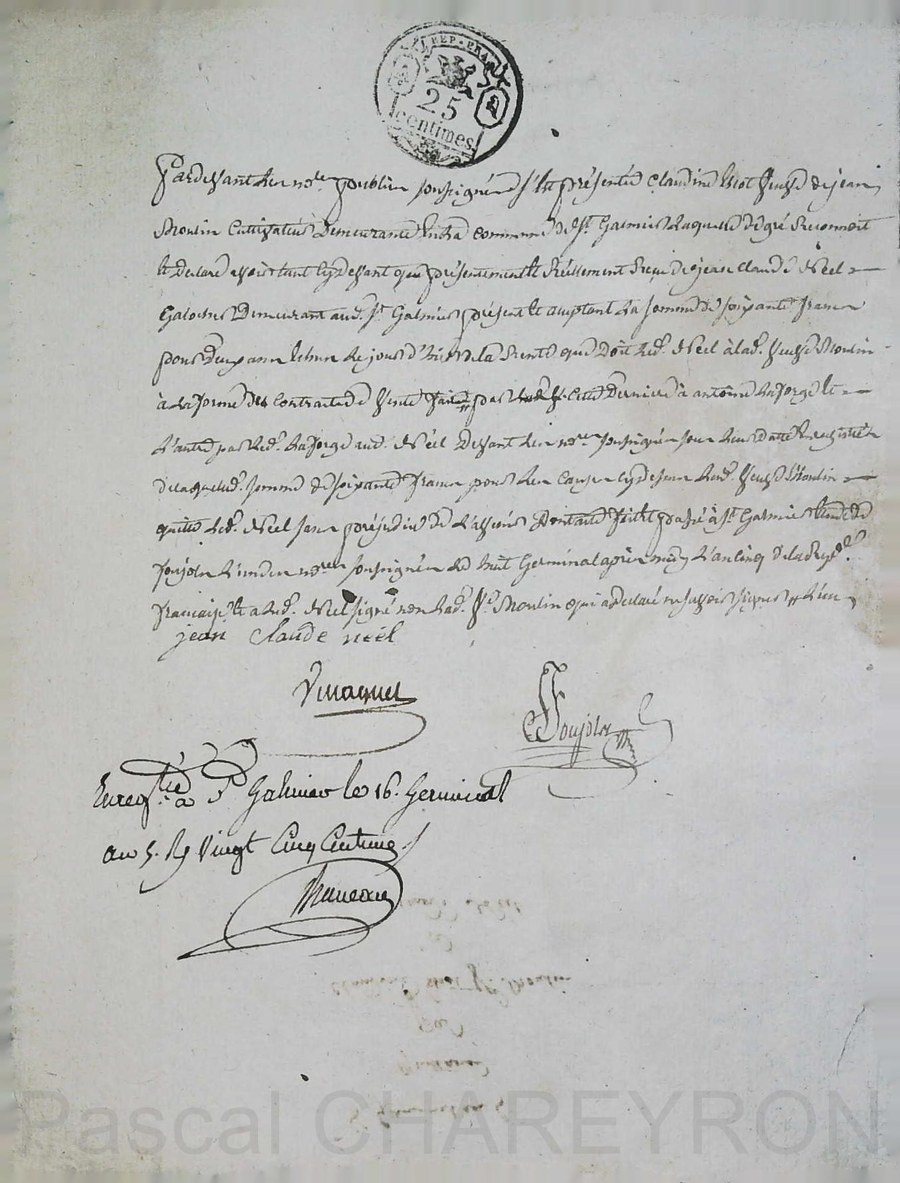 REP. FRA
25
centimes
Pardevant les nore publics soussignés s'est présentée Claudine veuve de jean
Moulin Cultivateur Demeurante en la commune de St. Galmier laquelle de gré Reconnoit
et déclare avoir tant cy devant que présentement et Réellement Reçu de jean claude Noel
Demeurant aud. St. Galmier présent et acceptant La somme de soixante francs
pour deux ans échus de la Rente que Doit led. Noel à lad. veuve Moulin
à la forme des Contracts de vente par cette Derniere à antoine Laforge et
L'autre par led. Laforge aud. Noel Devant les nores soussignés sous leur date
de laquelle somme de soixante francs pour les causes cy dessus lad. veuve Moulin
quitte led. Noel sans préjudice de fait et passé à St. Galmier Etude de
Foujols L'un des nores soussignés le huit Germinal après midy L'an cinq de la Repe.
française et a led. Noel signé non lad. ve. Moulin qui a déclaré ne savoir signer
jean claude noël
Foujols
Enregtré a St Galmier le 16. Germinal
au 5. Rç Vingt Cinq Centimes
Pascal CHAREYRON